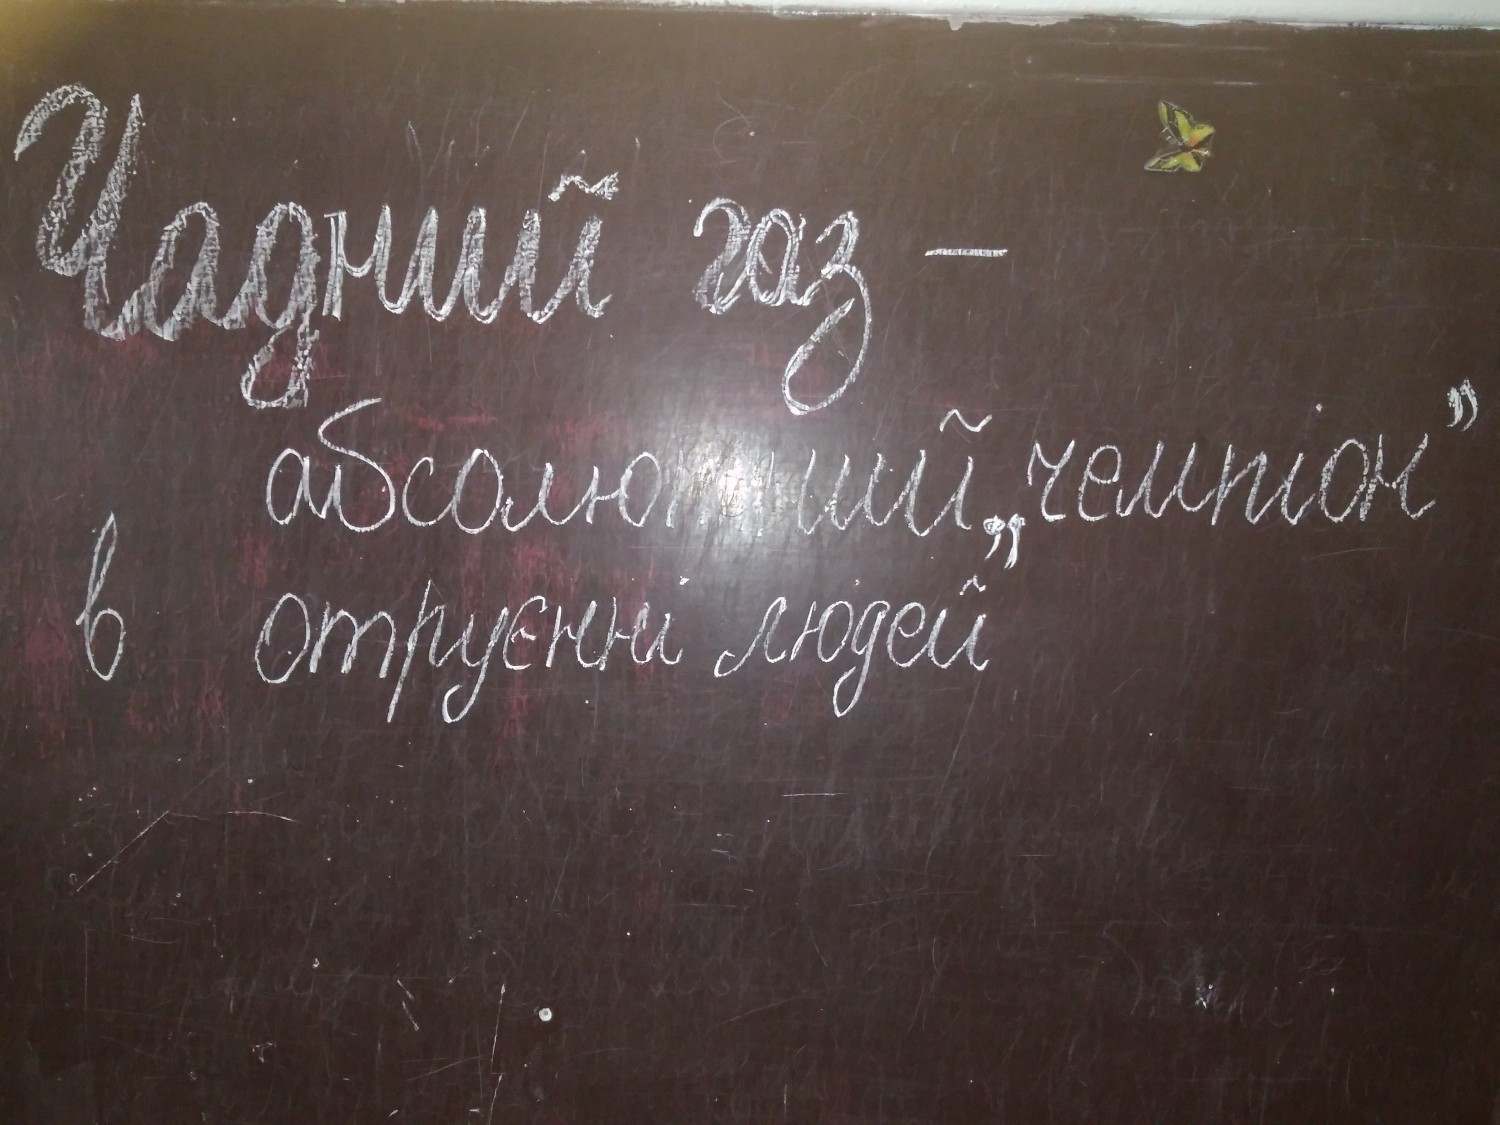 Чадний газ –
абсолютний „чемпіон”
в отруєнні людей